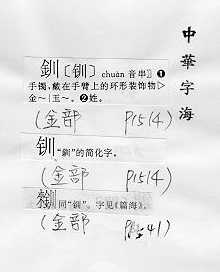 中華字海
釧〔钏〕chuàn 音串〗❶
手镯，戴在手臂上的环形装饰物▷
金～｜玉～。❷姓。
(金部 P1514)
钏 “釧”的简化字。
(金部 P1514)
同“釧”。字见《篇海》。
(金部